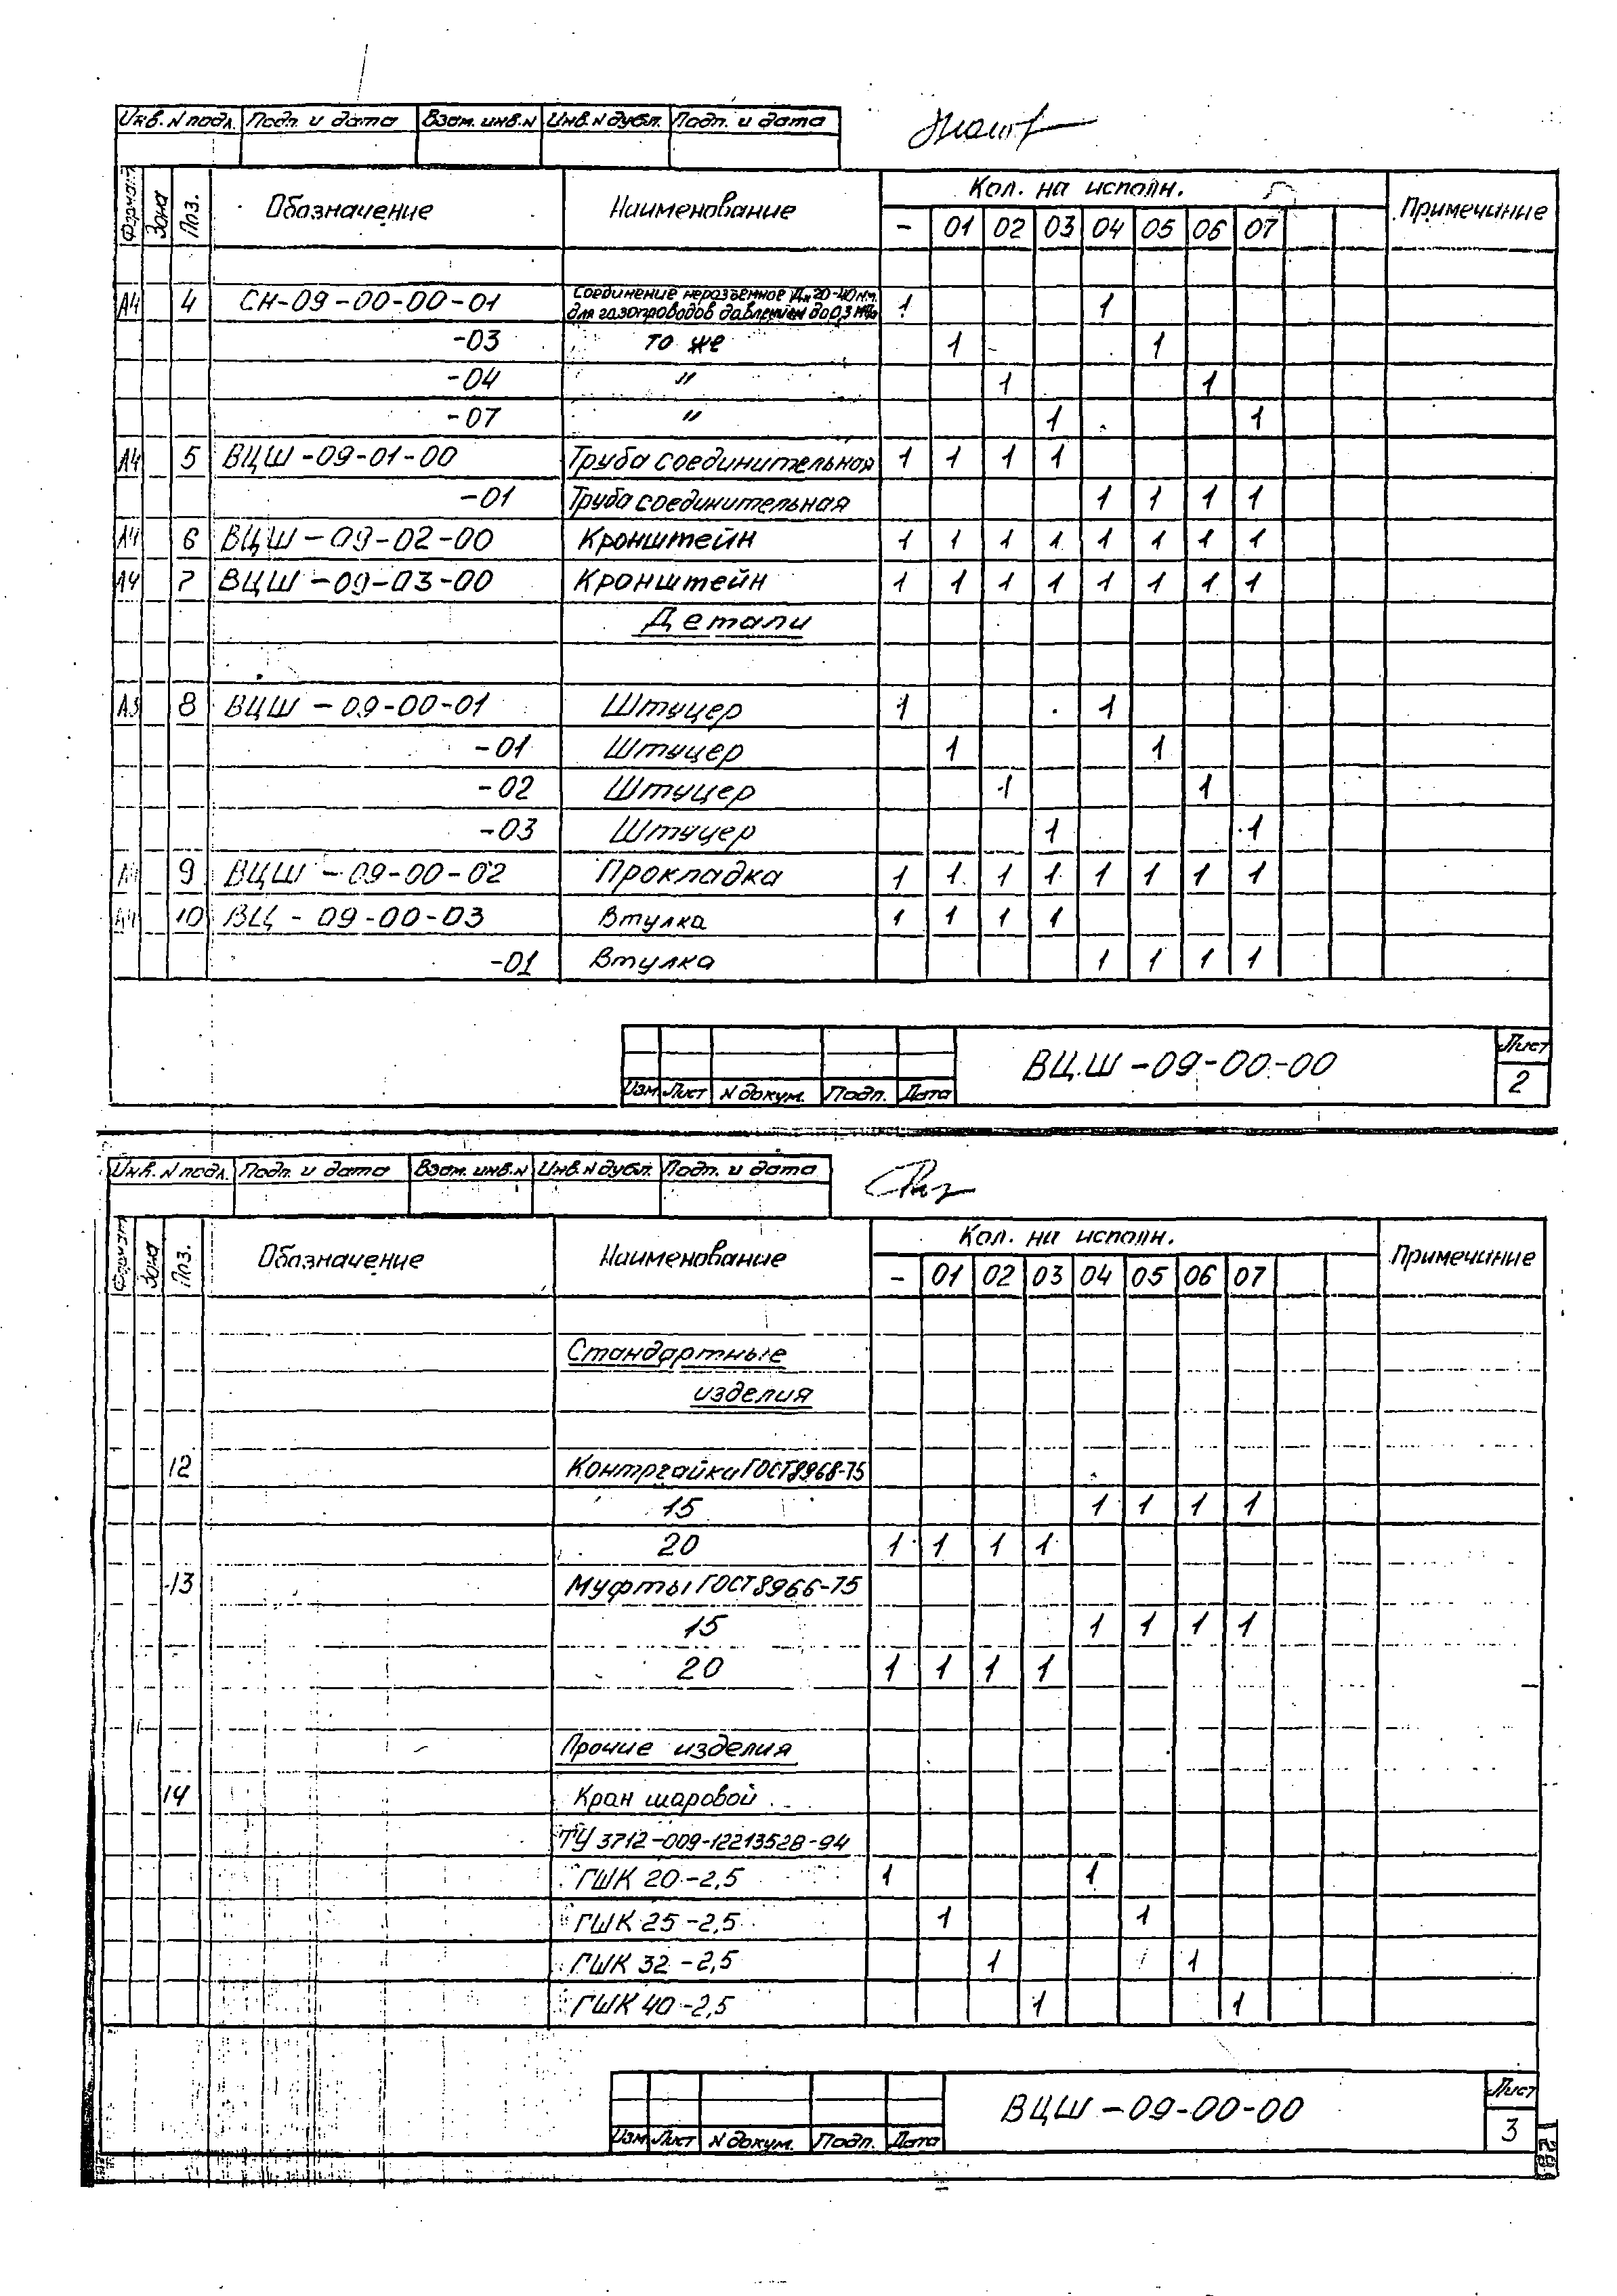 Инв. N подл. Подп. и дата Взам. инв. N Инв. N дубл. Подп. и дата
Формат Зона Поз. Обозначение Наименование Кол. на исполн. Примечание
- 01 02 03 04 05 06 07
А4 4 СН-09-00-00-01 Соединение неразъемное Дн 20-40 мм. 1 1
для газопроводов давлением до 0,3 МПа
-03 то же 1 1
-04 " 1 1
-07 " 1 1
А4 5 ВЦШ-09-01-00 Труба соединительная 1 1 1 1
-01 Труба соединительная 1 1 1 1
А4 6 ВЦШ-09-02-00 Кронштейн 1 1 1 1 1 1 1 1
А4 7 ВЦШ-09-03-00 Кронштейн 1 1 1 1 1 1 1 1
Детали
А3 8 ВЦШ-09-00-01 Штуцер 1 1
-01 Штуцер 1 1
-02 Штуцер 1 1
-03 Штуцер 1 1
9 ВЦШ-09-00-02 Прокладка 1 1 1 1 1 1 1 1
А4 10 ВЦ-09-00-03 Втулка 1 1 1 1
-01 Втулка 1 1 1 1
ВЦШ-09-00-00
Лист
2
Изм Лист N докум. Подп. Дата
Инв. N подл. Подп. и дата Взам. инв. N Инв. N дубл. Подп. и дата
Формат Зона Поз. Обозначение Наименование Кол. на исполн. Примечание
- 01 02 03 04 05 06 07
Стандартные
изделия
12 Контргайка ГОСТ 8968-75
15 1 1 1 1
20 1 1 1 1
13 Муфты ГОСТ 8966-75
15 1 1 1 1
20 1 1 1 1
Прочие изделия
14 Кран шаровой
ТУ 3712-009-12213528-94
ГШК 20-2,5 1 1
ГШК 25-2,5 1 1
ГШК 32-2,5 1 1
ГШК 40-2,5 1 1
ВЦШ-09-00-00
Лист
3
Изм Лист N докум. Подп. Дата